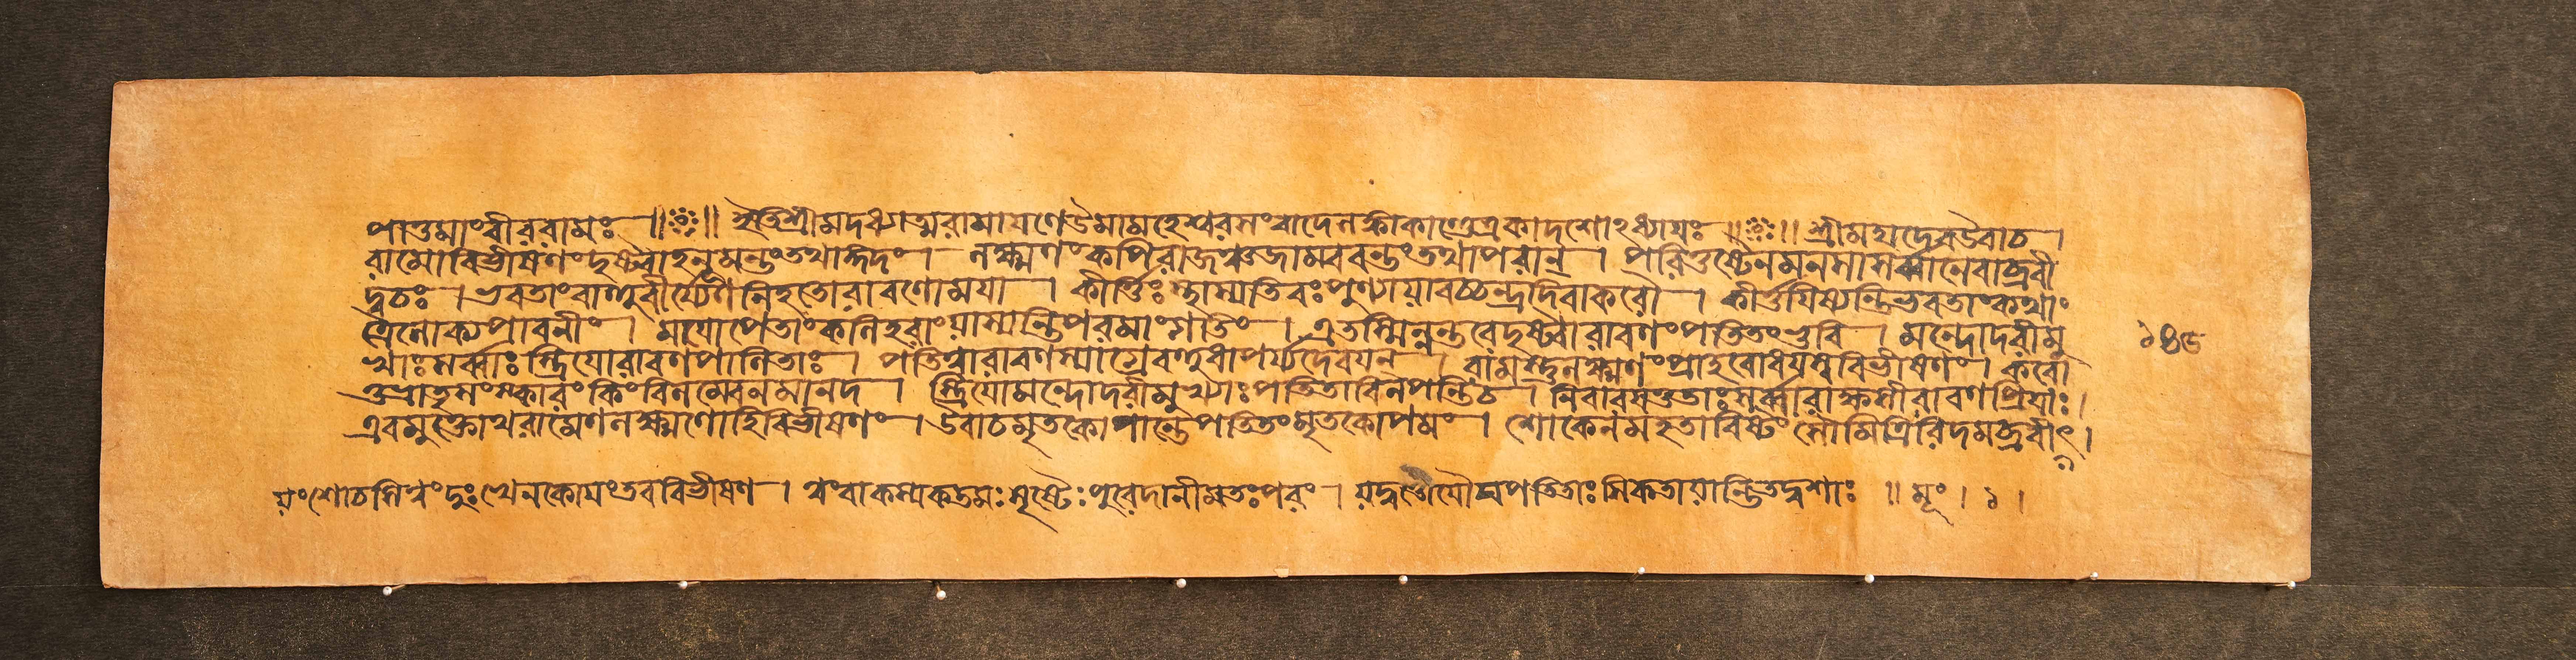 পাতুমাংবীররামঃ ॥ ॥ ইতিশ্রীমদধ্যাত্মরামায়ণেউমামহেশ্বরসংবাদেলঙ্কাকাণ্ডেএকাদশোঽধ্যায়ঃ ॥ ॥ শ্রীমহাদেবউবাচ ।
রামোবিভীষণংদৃষ্ট্বাহনূমন্তংতথাঙ্গদং । লক্ষ্মণংকপিরাজঞ্চজাম্ববন্তংতথাপরান্ । পরিতুষ্টেনমনসাসর্ব্বানেবাব্রবী
দ্বচঃ । ভবতাংবাহুবীর্য্যেণনিহতোরাবণোময়া । কীর্ত্তিঃস্থাস্যতিবঃপুণ্যাযাবচ্চন্দ্রদিবাকরৌ । কীর্ত্তয়িষ্যন্তিভবতাংকথাং
ত্রৈলোক্যপাবনীং । ময়োপেতাংকলিহরাংযাস্যন্তিপরমাংগতিং । এতস্মিন্নন্তরেদৃষ্ট্বারাবণংপতিতংভুবি । মন্দোদরীমু ১৪৫
খ্যাঃসর্ব্বাঃস্ত্রিয়োরাবণপালিতাঃ । পতিত্বারাবণস্যাগ্রে পর্য্যদেবয়ন্ । রামস্তুলক্ষ্মণংপ্রাহবোধয়স্ববিভীষণং । করো
তুভ্রাতৃসংস্কারংকিংবিলম্বেনমানদ । স্ত্রিয়োমন্দোদরীমুখ্যাঃপতিতাবিলপন্তিচ । নিবারয়তুতাঃসর্ব্বারাক্ষসীরাবণপ্রিয়াঃ ।
এবমুক্তোথরামেণলক্ষ্মণোহিবিভীষণং । উবাচমৃতকোপান্তেপতিতংমৃতকোপমং । শোকেনমহতাবিষ্টংসৌমিত্রিরিদমব্রবীৎ ।
যংশোচসিত্বংদুঃখেনকোয়ংতববিভীষণ । ত্বংবাকস্যকতমঃসৃষ্টেঃপুরেদানীমতঃপরং । যদ্বত্তোয়ৌঘপতিতাঃসিকতাযান্তিতদ্বশাঃ ॥ মূং । ১ ।